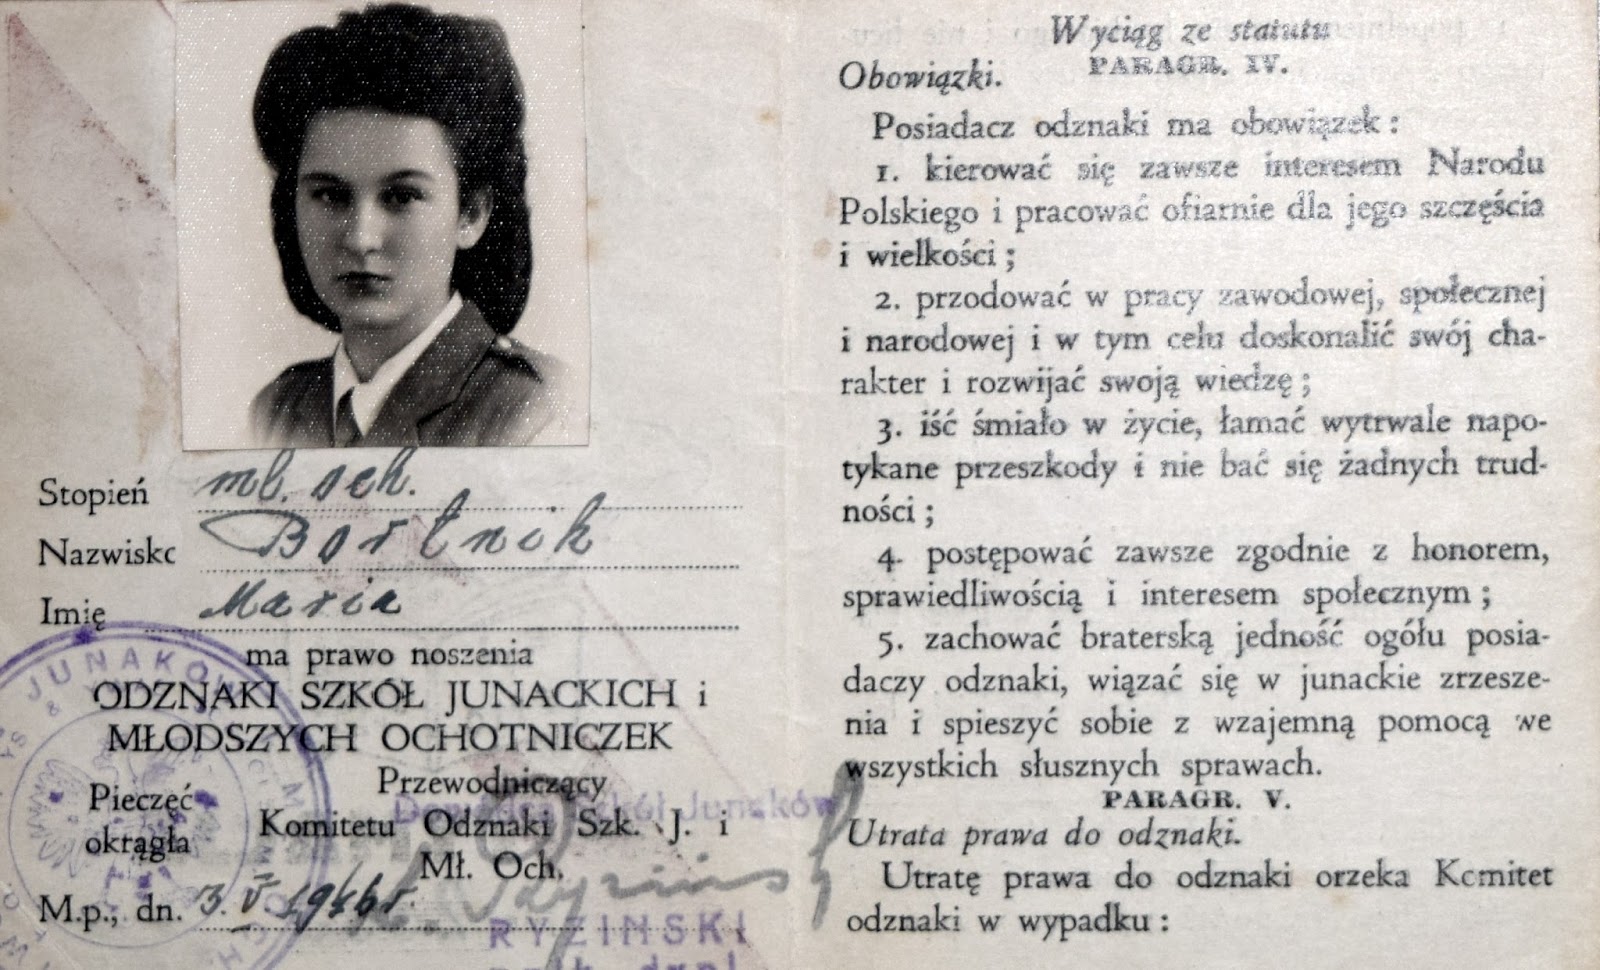 Stopień mł. och.
Nazwisko Bortnik
Imię Maria
ma prawo noszenia
ODZNAKI SZKÓŁ JUNACKICH i
MŁODSZYCH OCHOTNICZEK
Pieczęć
okrągła
Przewodniczący
Komitetu Odznaki Szk. J. i
Mł. Och.
M.p., dn. 3. V 1946 r.
JUNAKÓW
Szkół Junaków
RYZINSKI
Wyciąg ze statutu
PARAGR. IV.
Obowiązki.
Posiadacz odznaki ma obowiązek :
1. kierować się zawsze interesem Narodu
Polskiego i pracować ofiarnie dla jego szczęścia
i wielkości ;
2. przodować w pracy zawodowej, społecznej
i narodowej i w tym celu doskonalić swój cha-
rakter i rozwijać swoją wiedzę ;
3. iść śmiało w życie, łamać wytrwale napo-
tykane przeszkody i nie bać się żadnych trud-
ności ;
4. postępować zawsze zgodnie z honorem,
sprawiedliwością i interesem społecznym ;
5. zachować braterską jedność ogółu posia-
daczy odznaki, wiązać się w junackie zrzesze-
nia i spieszyć sobie z wzajemną pomocą we
wszystkich słusznych sprawach.
PARAGR. V.
Utrata prawa do odznaki.
Utratę prawa do odznaki orzeka Komitet
odznaki w wypadku :